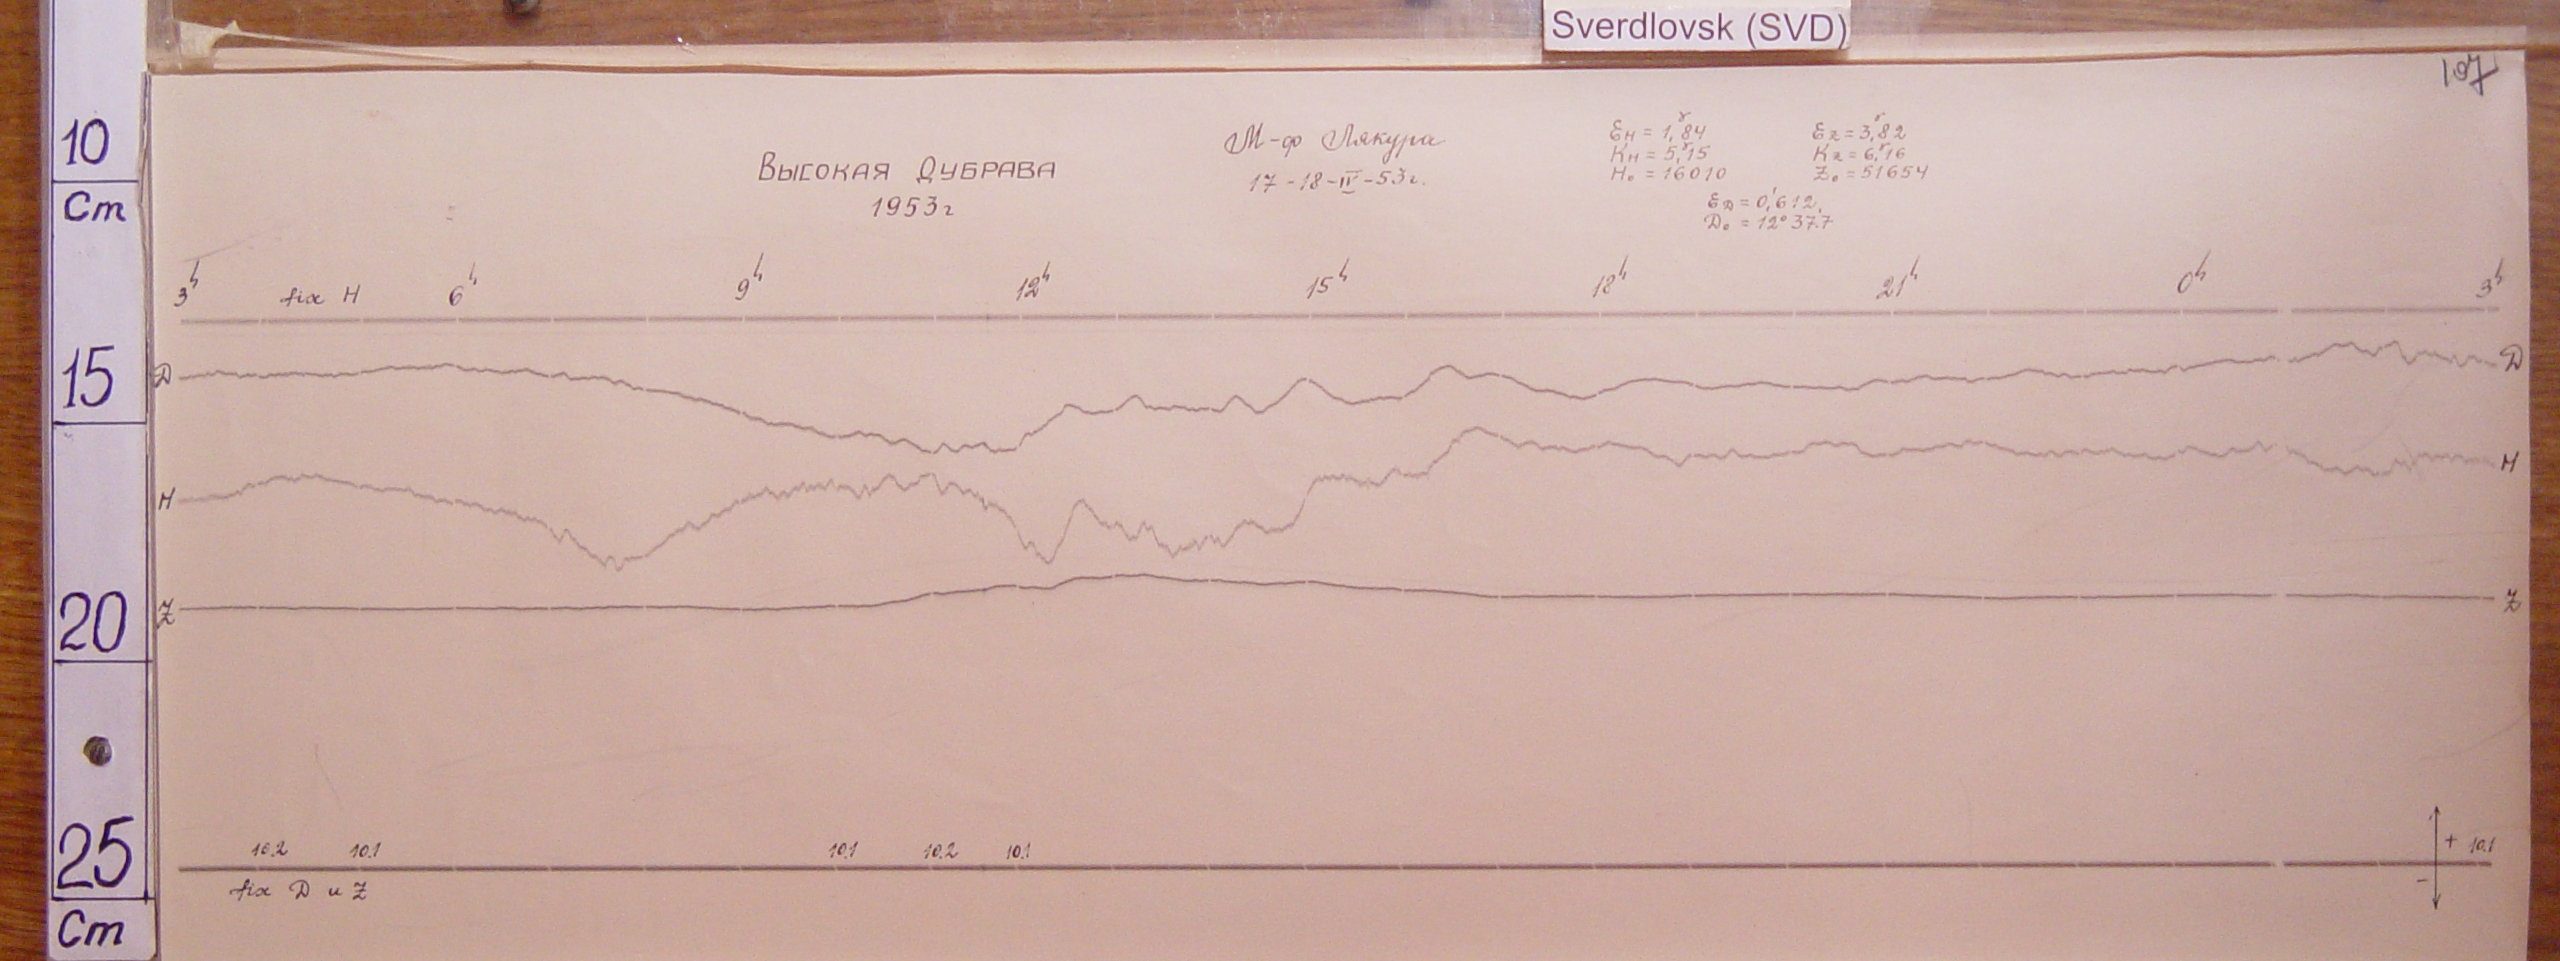 Sverdlovsk (SVD)
107
10
Cm
15
20
25
Cm
Высокая Дубрава
1953г
М-ф Лякура
17-18-IV-53г.
Ɛн = 1,84ᵞ
Kн = 5,15ᵞ
H₀ = 16010
Ɛz = 3,82ᵞ
Kz = 6,16ᵞ
Z₀ = 51654
ƐD = 0,′612
D₀ = 12° 37.7
3ʰ fix H 6ʰ 9ʰ 12ʰ 15ʰ 18ʰ 21ʰ 0ʰ 3ʰ
D D
H H
Z Z
10.2 10.1 10.1 10.2 10.1 + 10.1
fix D и Z −